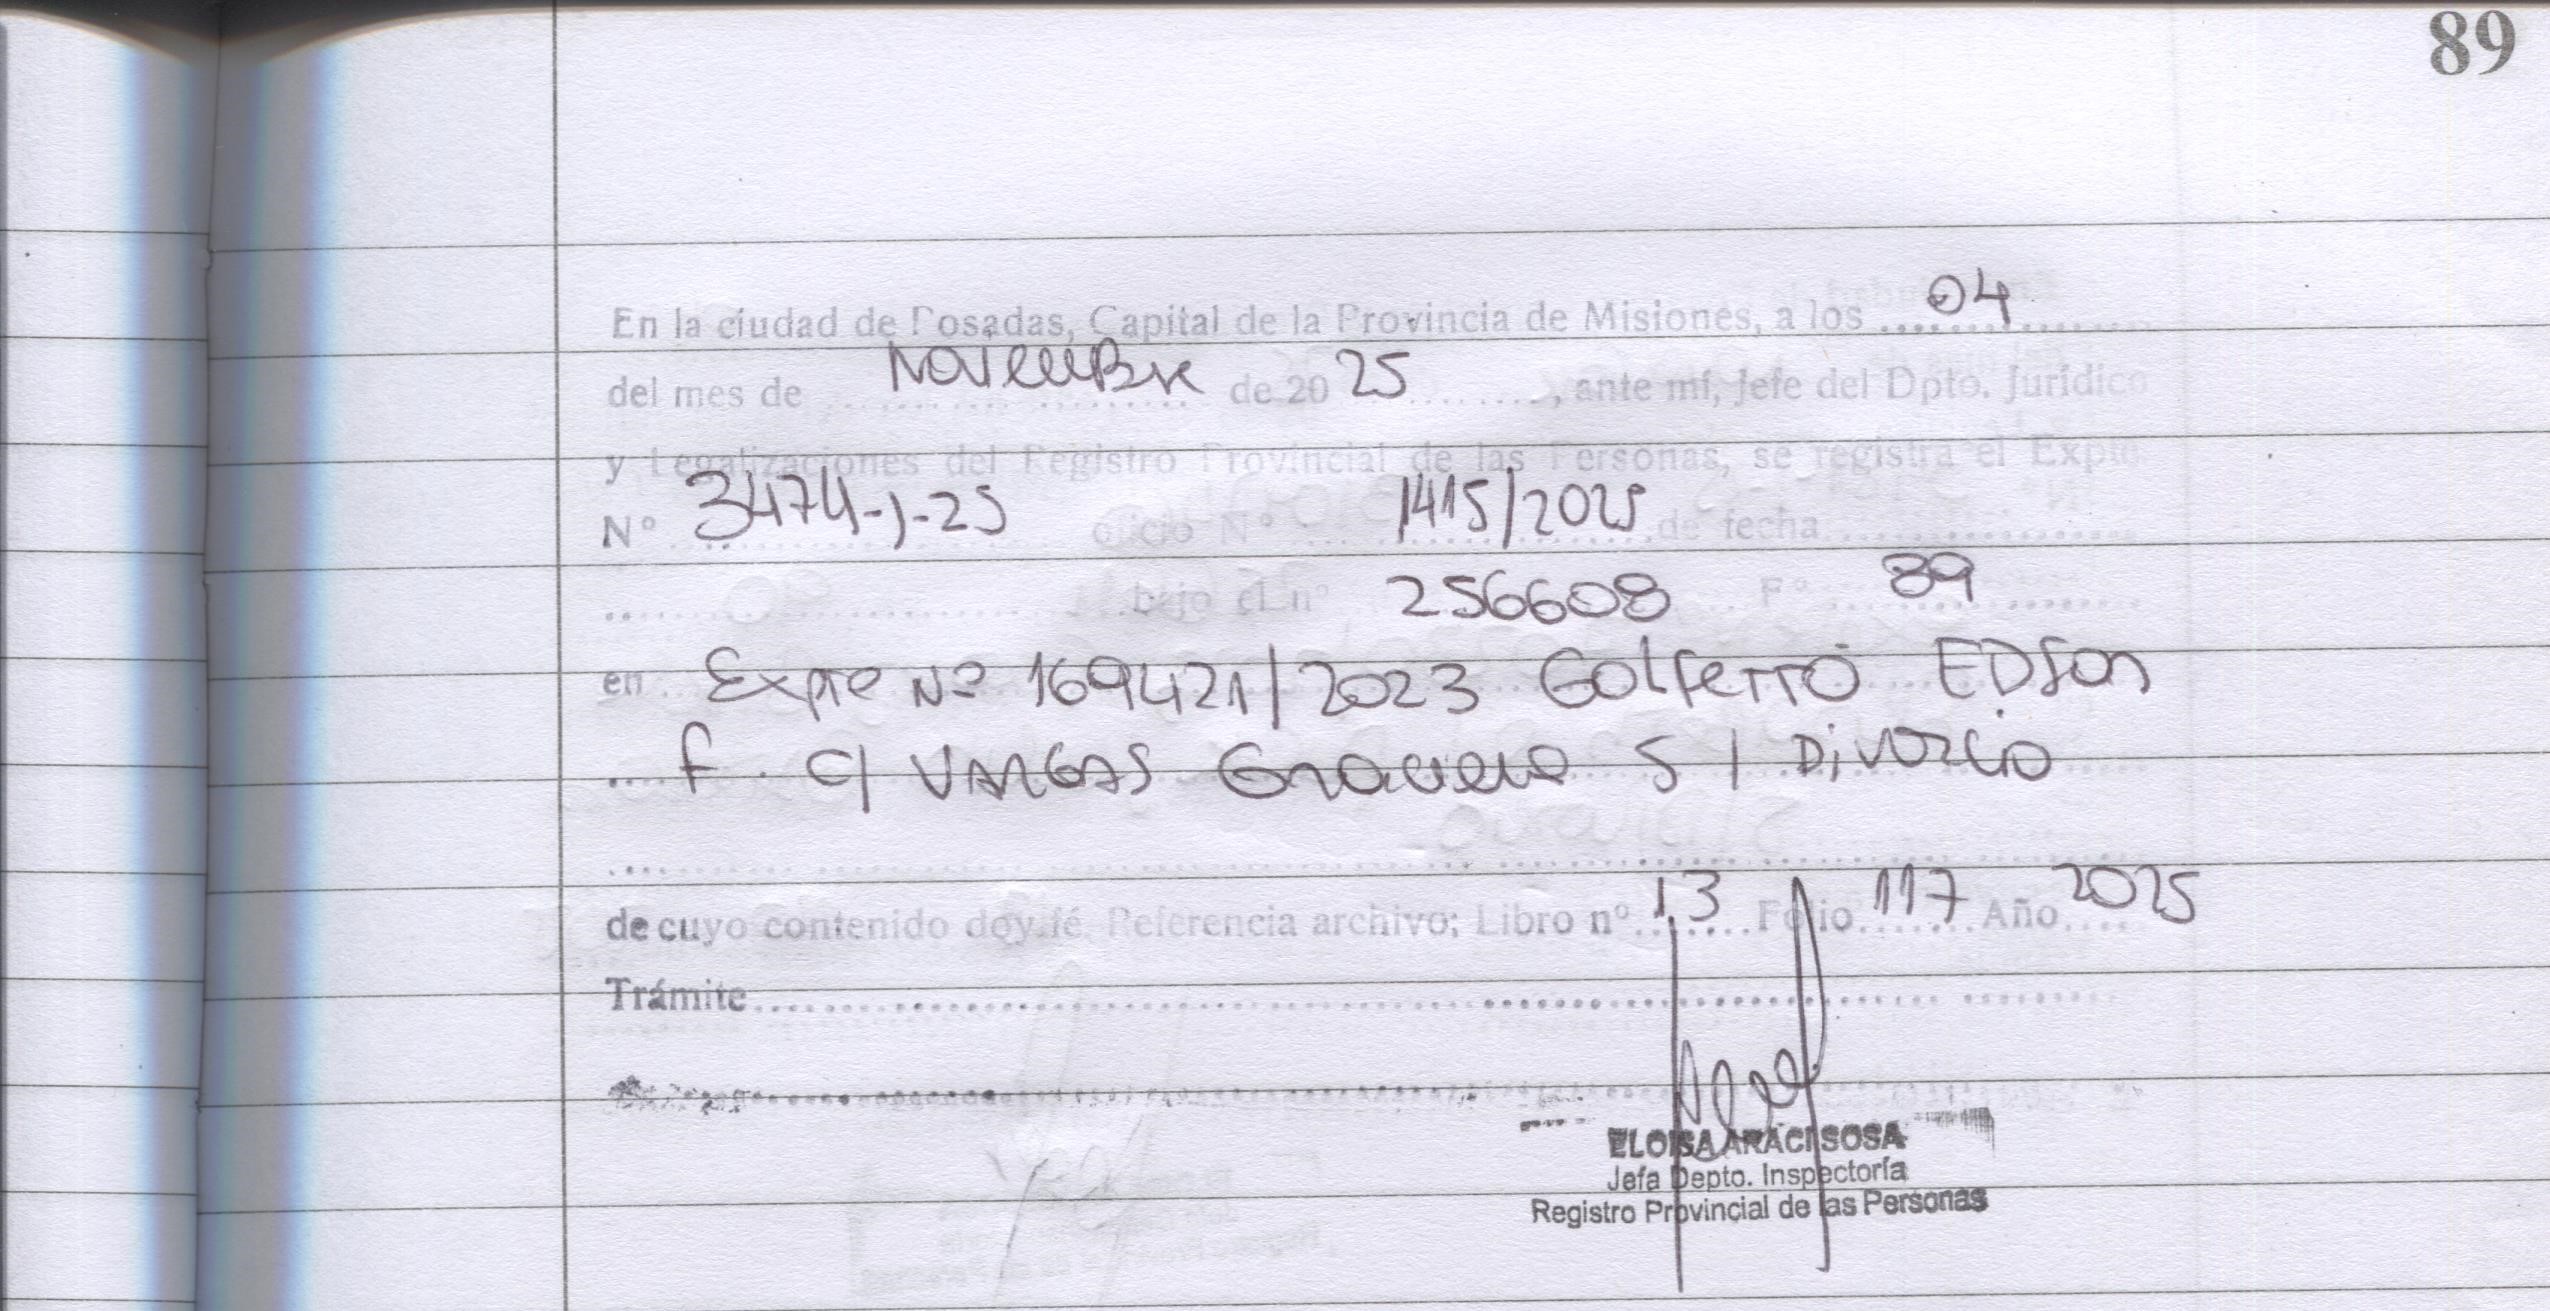 89
En la ciudad de Posadas, Capital de la Provincia de Misiones, a los 04
del mes de Noviembre de 20 25, ante mí, Jefe del Dpto. Jurídico
y Legalizaciones del Registro Provincial de las Personas, se registra el Expte.
Nº 3474-J-25 oficio Nº 1415/2025 de fecha
bajo el nº 256608 Fº 89
en Expte Nº 169421/2023 Golferro EDSON
F. c/ VARGAS Graciela S/ Divorcio
de cuyo contenido doy fé. Referencia archivo; Libro nº 13 Folio 117 Año 2025
Trámite
ELOISA ARACI SOSA
Jefa Depto. Inspectoría
Registro Provincial de las Personas